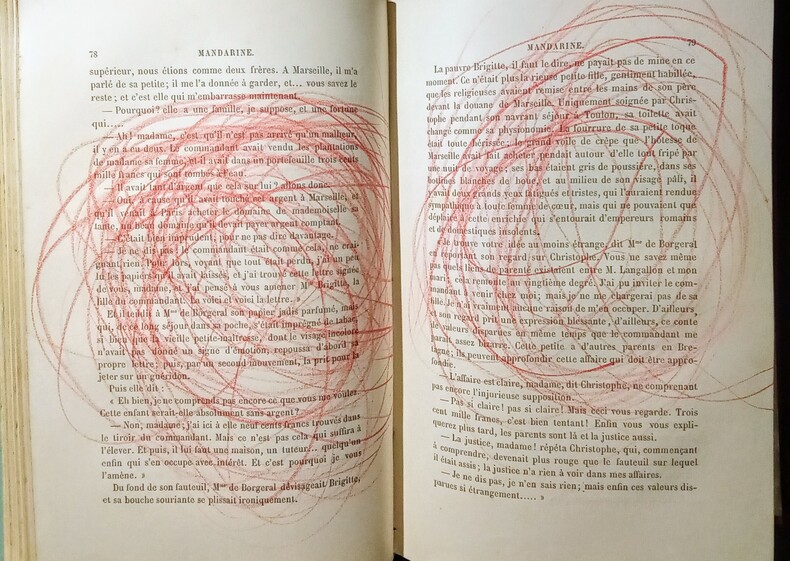 78
MANDARINE.
supérieur, nous étions comme deux frères. A Marseille, il m'a
parlé de sa petite; il me l'a donnée à garder, et... vous savez le
reste; et c'est elle qui m'embarrasse maintenant.
— Pourquoi? elle a une famille, je suppose, et une fortune
qui.....
— Ah! madame, c'est qu'il n'est pas arrivé qu'un malheur,
il y en a eu deux. Le commandant avait vendu les plantations
de madame sa femme, et il avait dans un portefeuille trois cents
mille francs qui sont tombés à l'eau.
— Il avait tant d'argent que cela sur lui? allons donc.
— Oui, à cause qu'il avait touché cet argent à Marseille, et
qu'il venait à Paris acheter un domaine à mademoiselle sa
taille, un domaine comme pour argent comptant.
— C'était bien imprudent, pour ne pas dire davantage.
— Je ne dis pas! Le commandant était comme cela, ne crai-
gnant rien. Pour lors, voyant que tout était perdu, j'ai un peu
lu les papiers qu'il avait laissés, et j'ai trouvé cette lettre signée
de vous, madame, et j'ai pensé à vous amener Mlle Brigitte, la
fille du commandant. La voici et voici la lettre. »
Et il tendit à Mme de Borgeral son pli jadis parfumé, mais
qui, de ce long séjour dans sa poche, s'était imprégné de tabac,
si bien que la vieille petite-maîtresse, dont le visage incolore
n'avait pas donné un signe d'émotion, repoussa d'abord sa
propre lettre; puis, par un second mouvement, la prit pour la
jeter sur un guéridon.
Puis elle dit:
« Eh bien, je ne comprends pas encore ce que vous me voulez.
Cette enfant serait-elle absolument sans argent?
— Non, madame, j'ai ici à elle neuf cents francs trouvés dans
le tiroir du commandant. Mais ce n'est pas cela qui suffira à
l'élever. Et puis, il lui faut une maison, un tuteur... quelqu'un
enfin qui s'en occupe avec intérêt. Et c'est pourquoi je vous
l'amène. »
Du fond de son fauteuil, Mme de Borgeral dévisageait Brigitte,
et sa bouche souriante se plissait ironiquement.
MANDARINE.
79
La pauvre Brigitte, il faut le dire, ne payait pas de mine en ce
moment. Ce n'était plus la rieuse petite fille, gentiment habillée,
que les religieuses avaient remise entre les mains de son père
devant la douane de Marseille. Uniquement soignée par Chris-
tophe pendant son navrant séjour à Toulon, sa toilette avait
changé comme sa physionomie. La fourrure de sa petite toque
était toute hérissée, le grand voile de crêpe que l'hôtesse de
Marseille avait fait acheter pendait autour d'elle tout fripé par
une nuit de voyage; ses habits étaient gris de poussière, dans ses
bottines blanches de boue, et au milieu de son visage pâli, il
y avait deux grands yeux fatigués et tristes, qui l'auraient rendue
sympathique à toute femme de cœur, mais qui ne pouvaient que
déplaire à cette enrichie qui s'entourait d'empereurs romains
et de domestiques insolents.
« Je trouve votre idée au moins étrange, dit Mme de Borgeral
en reportant son regard sur Christophe. Vous ne savez même
pas quels liens de parenté existaient entre M. Langallon et mon
mari; cela remonte au vingtième degré. J'ai pu inviter le com-
mandant à venir chez moi; mais je ne me chargerai pas de sa
fille. Je n'ai vraiment aucune raison de m'en occuper. D'ailleurs,
et son regard prit une expression blessante, d'ailleurs, ce conte
de valeurs disparues en même temps que le commandant me
paraît assez bizarre. Cette petite a d'autres parents en Bre-
tagne; ils peuvent approfondir cette affaire qui doit être appro-
fondie.
— L'affaire est claire, madame, dit Christophe, ne comprenant
pas encore l'injurieuse supposition.
— Pas si claire! pas si claire! Mais ceci vous regarde. Trois
cent mille francs, c'est bien tentant! Enfin vous vous expli-
querez plus tard, les parents sont là et la justice aussi.
— La justice, madame! répéta Christophe, qui, commençant
à comprendre, devenait plus rouge que le fauteuil sur lequel
il était assis; la justice n'a rien à voir dans mes affaires.
— Je ne dis pas, je n'en sais rien; mais enfin ces valeurs dis-
parues si étrangement..... »